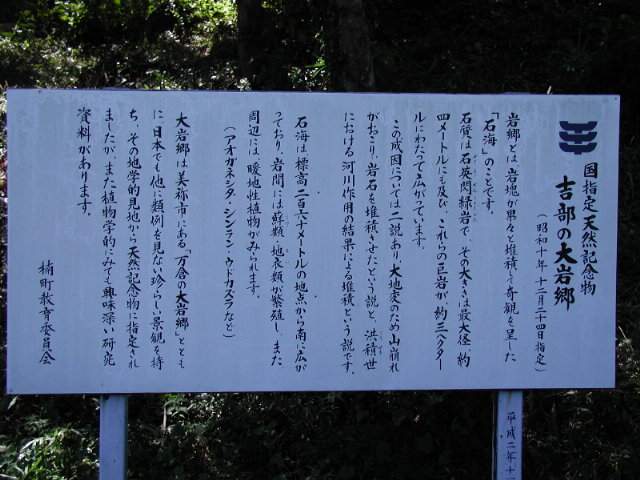 国指定天然記念物
吉部の大岩郷
（昭和十年十二月二十四日指定）
岩郷とは、岩塊が累々と堆積して奇観を呈した
「石海」のことです。
石質は石英閃緑岩で、その大きさは最大径約
四メートルにも及び、これらの巨岩が約三ヘクター
ルにわたって広がっています。
この成因については二説あり、大地変のため山崩れ
がおこり、岩石を堆積させたという説と、洪積世
における河川作用の結果による堆積という説です。
石海は標高二百六十メートルの地点から南に広が
っており、岩間には蘚類・地衣類が繁殖し、また
周辺には暖地性植物がみられます。
（アオガネシダ・シシラン・ウドカズラなど）
大岩郷は美祢市にある「万倉の大岩郷」ととも
に、日本でも他に類例を見ない珍らしい景観を持
ち、その地学的見地から天然記念物に指定され
ましたが、また植物学的にみても興味深い研究
資料があります。
楠町教育委員会
平成二年十一